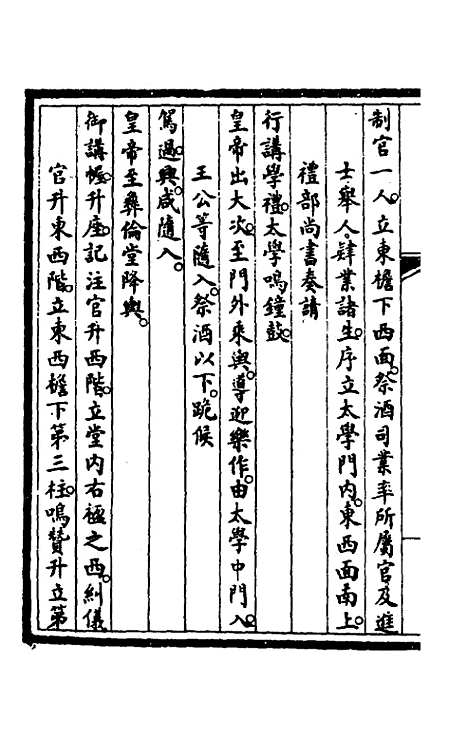 制官一人。立東檐下西面。祭酒司業率所屬官及進
士舉人。肄業諸生。序立太學門内。東西面南上。
禮部尚書奏請
行講學禮。太學鳴鐘鼓。
皇帝出大次。至門外乘輿。導迎樂作。由太學中門入。
王公等隨入。祭酒以下。跪候
駕過。興。咸隨入。
皇帝至彝倫堂降輿。
御講幄。升座。記注官升西階。立堂内右楹之西。糾儀
官升東西階。立東西檐下第三柱。鳴贊升立第